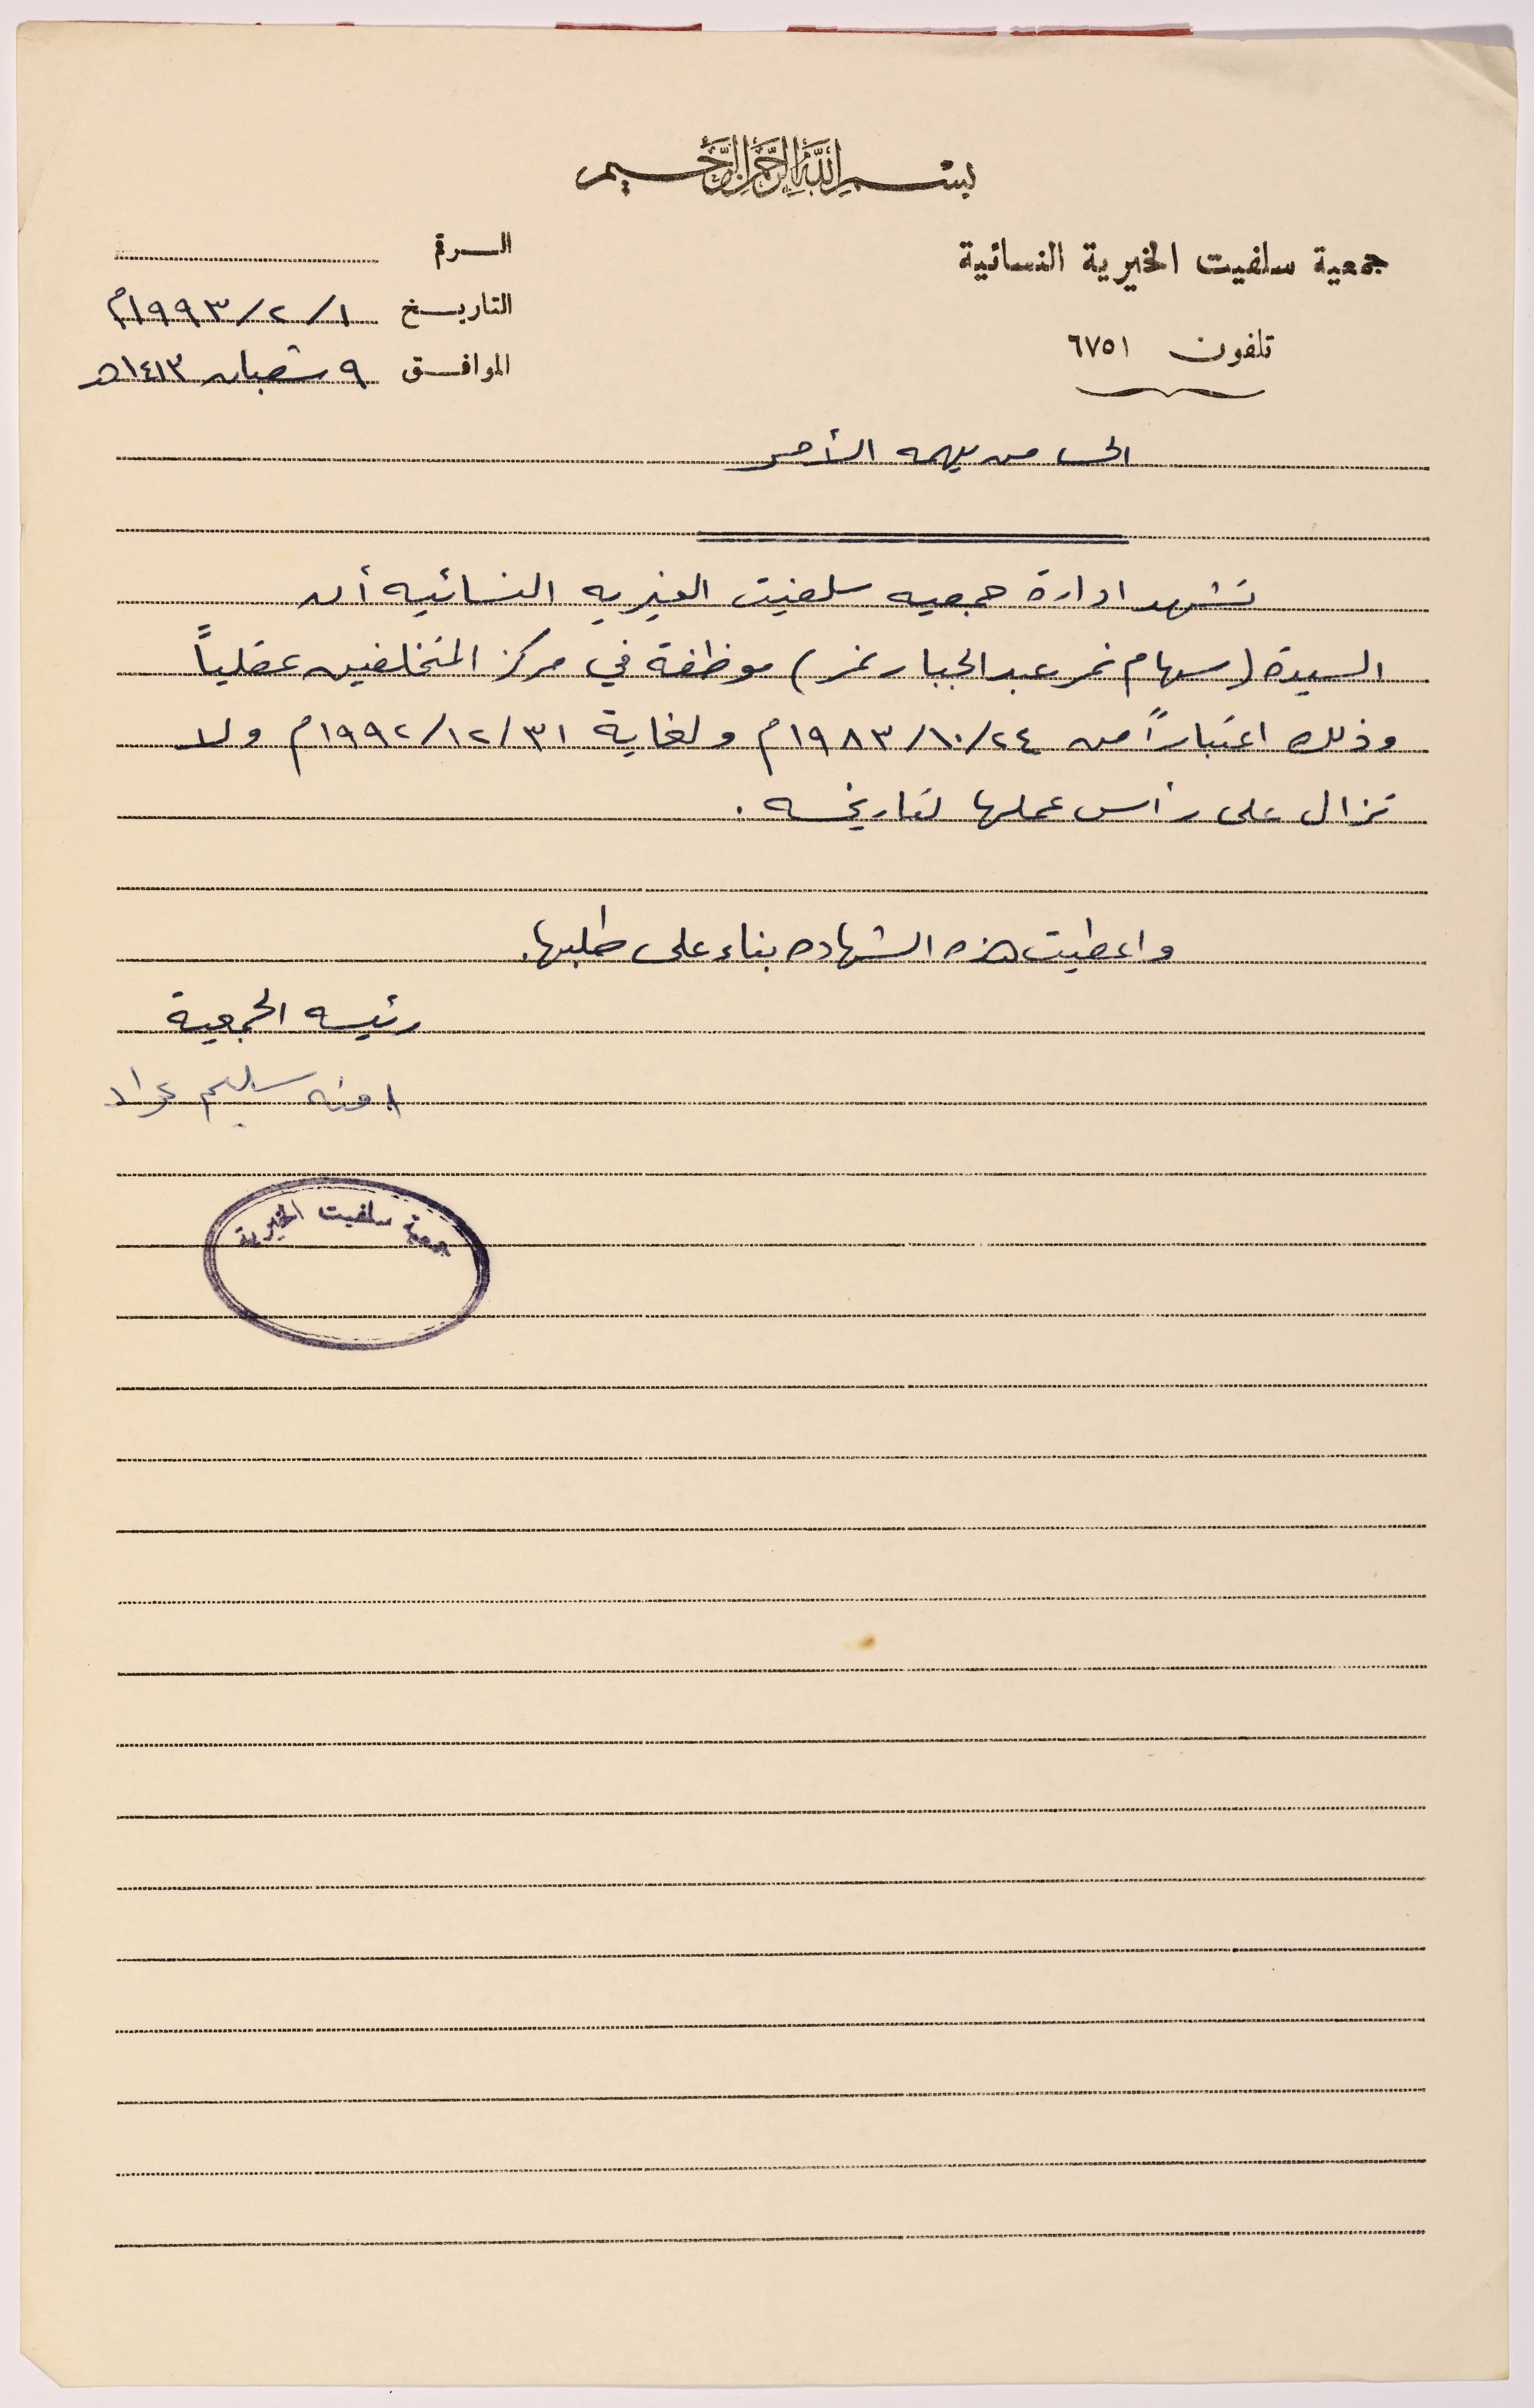 بسم الله الرحمن الرحيم
جمعية سلفيت الخيرية النسائية
تلفون ٦٧٥١
الرقم
التاريخ ١/٢/١٩٩٣م
الموافق ٩ شعبان ١٤١٣هـ
الى من يهمه الأمر
تشهد ادارة جمعيه سلفيت الخيريه النسائيه أن
السيدة (سهام نمر عبد الجبار نمر) موظفة في مركز المتخلفين عقلياً
وذلك اعتباراً من ٢٤/١٠/١٩٨٣م ولغاية ٣١/١٢/١٩٩٢م ولا
تزال على رأس عملها لتاريخه .
واعطيت هذه الشهاده بناء على طلبها.
رئيسه الجمعية
امنه سليم
جمعية سلفيت الخيرية